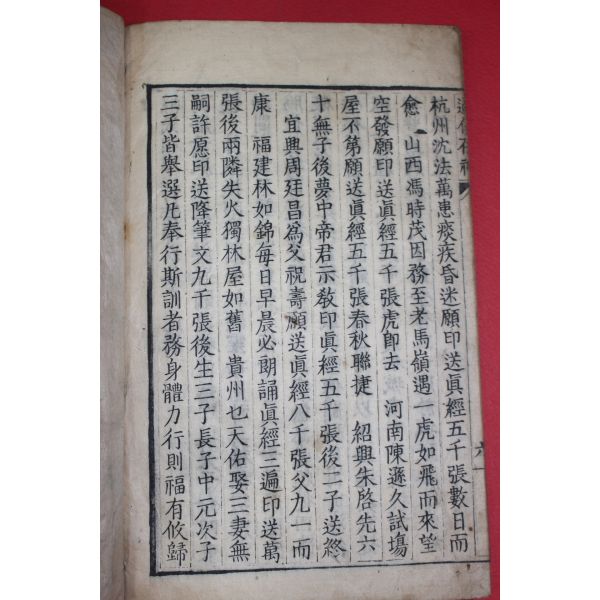 過化存神 六
杭州沈法萬患痰疾昏迷願印送眞經五千張數日而
愈 山西馮時茂因務至老馬嶺遇一虎如飛而來望
空發願印送眞經五千張虎卽去 河南陳遜久試塲
屋不第願送眞經五千張春秋聯捷 紹興朱啓先六
十無子後夢中帝君示敎印眞經五千張後二子送終
宜興周廷昌爲父祝壽願送眞經八千張父九一而
康 福建林如錦每日早晨必朗誦眞經三遍印送萬
張後兩隣失火獨林屋如舊 貴州乜天佑娶三妻無
嗣許愿印送降筆文九千張後生三子長子中元次子
三子皆擧選凡奉行斯訓者務身體力行則福有攸歸